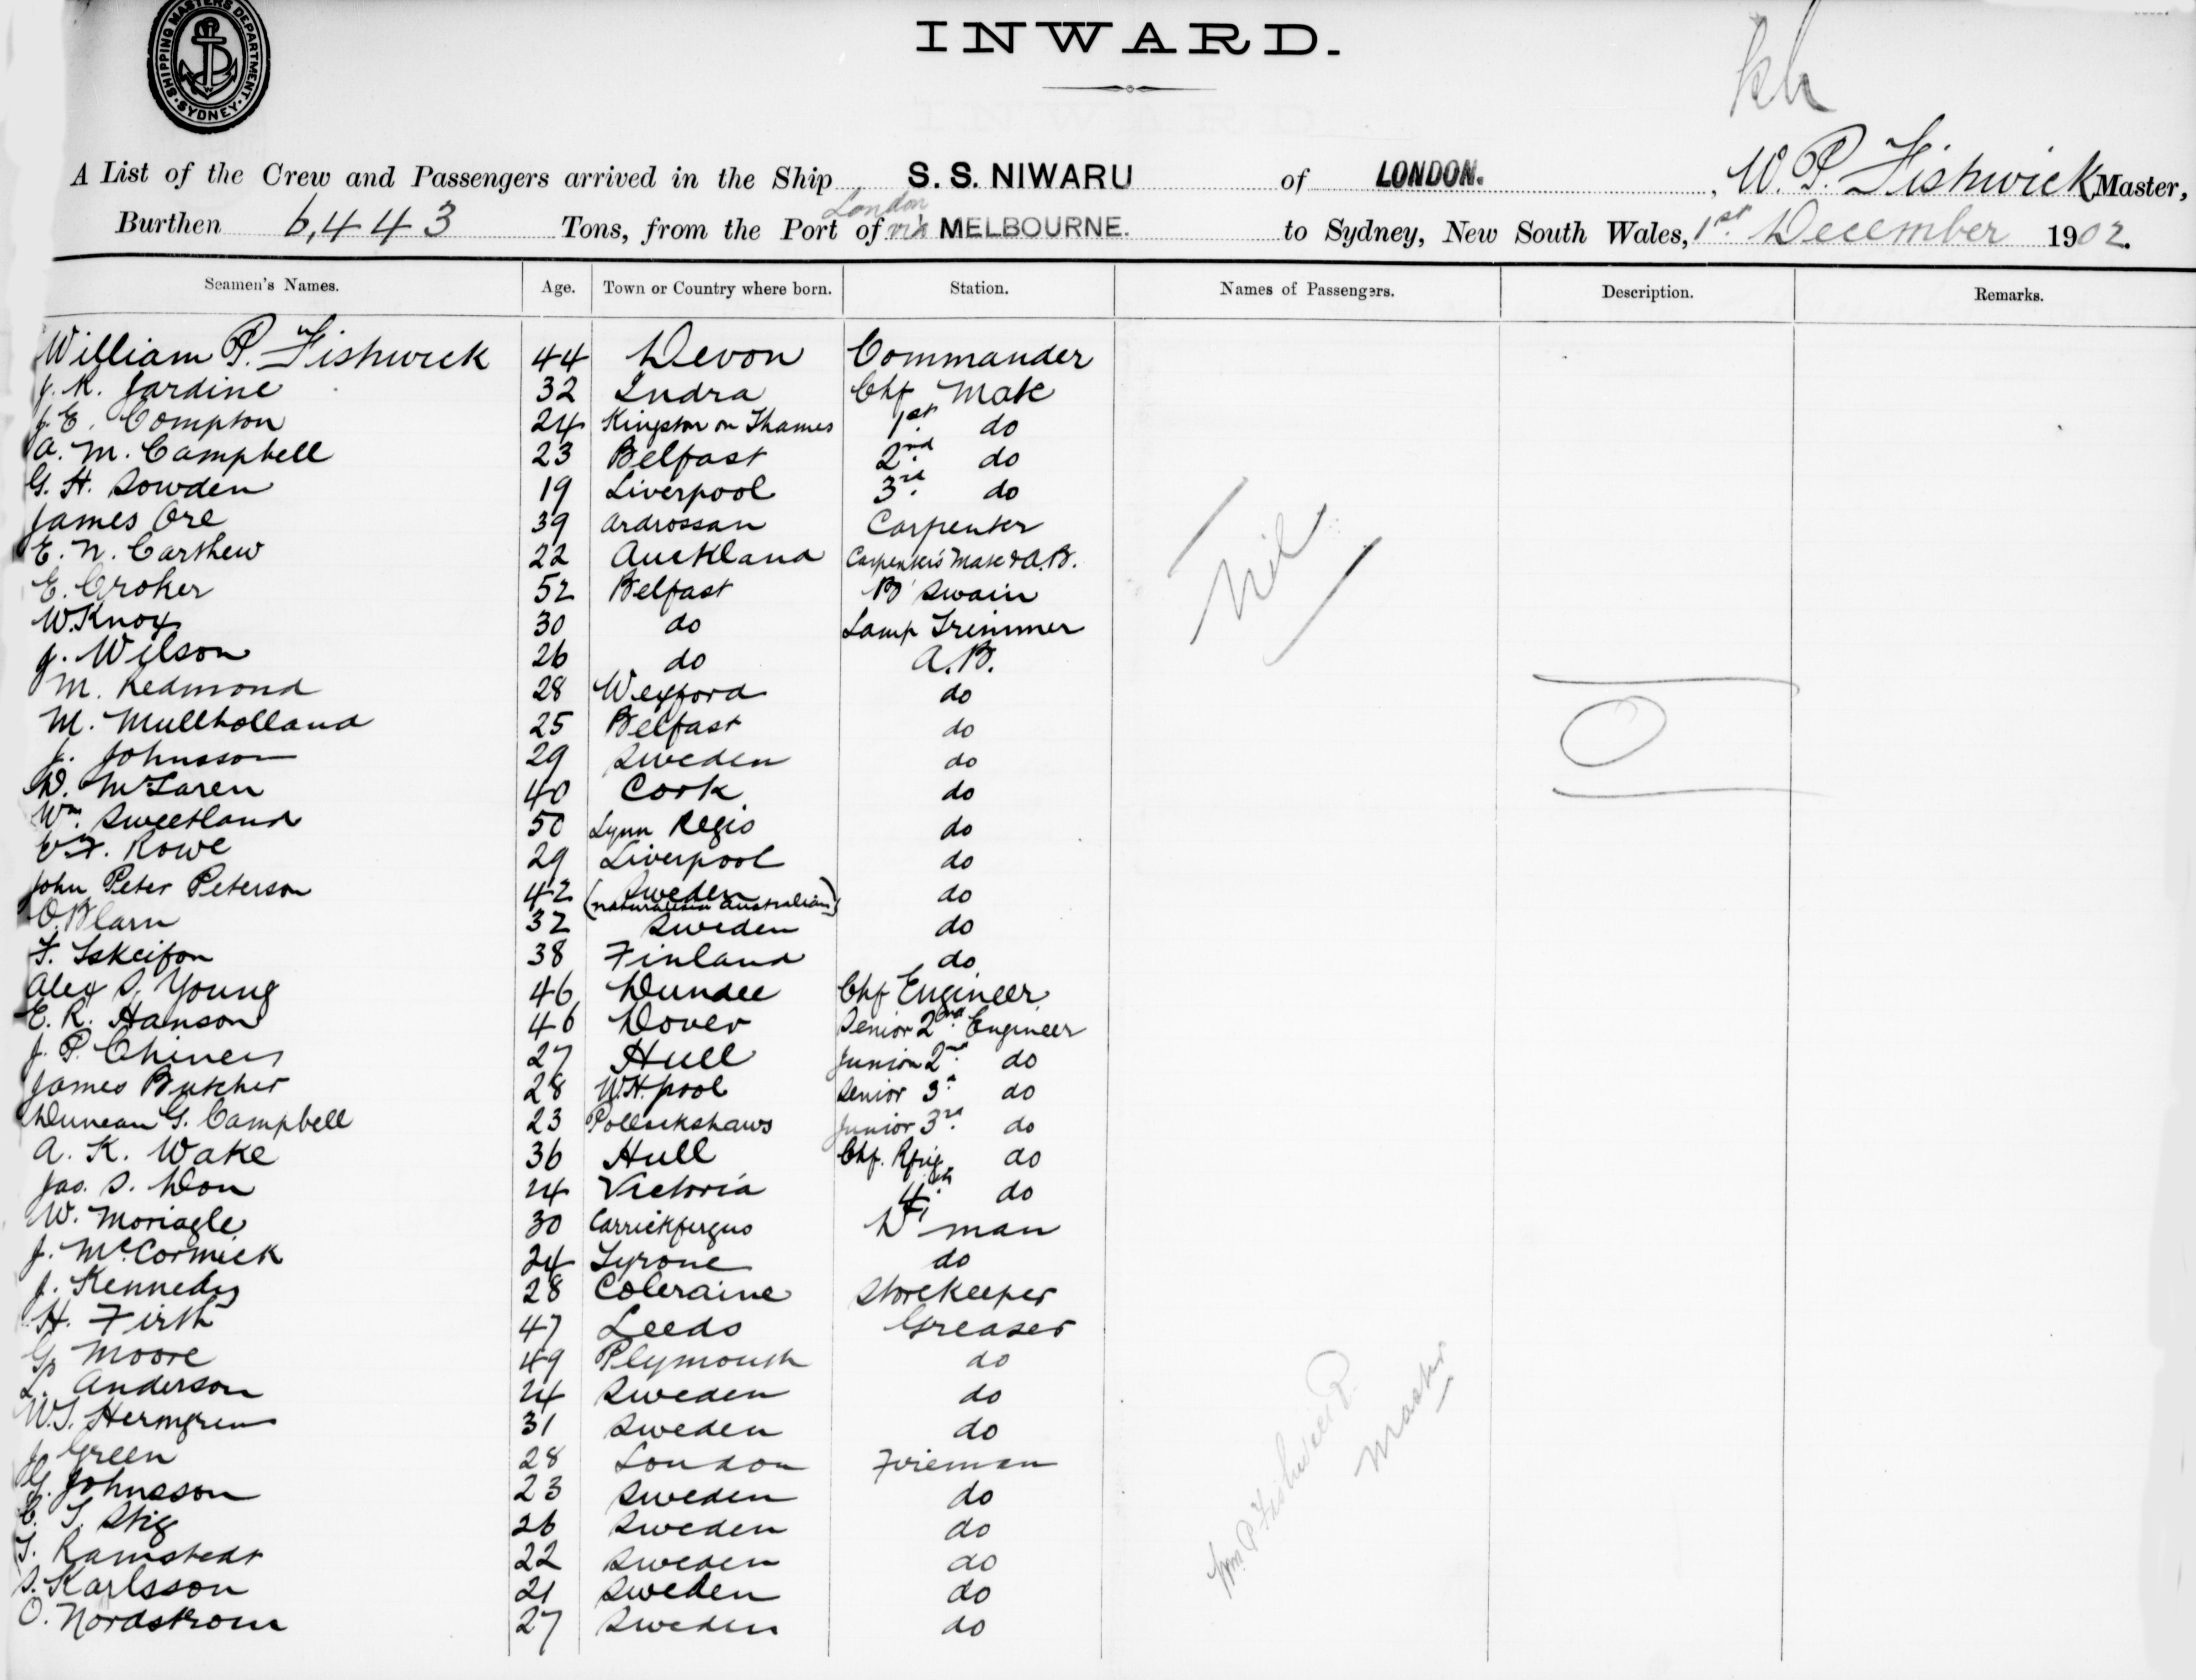 SHIPPING MASTERS DEPARTMENT. SYDNEY.
INWARD.
A List of the Crew and Passengers arrived in the Ship S. S. NIWARU of LONDON. , W. P. Fishwick Master,
London
Burthen 6,443 Tons, from the Port of via MELBOURNE. to Sydney, New South Wales, 1st December 1902.
Seamen's Names. Age. Town or Country where born. Station. Names of Passengers. Description. Remarks.
William P. Fishwick 44 Devon Commander
J. K. Jardine 32 Indra Chf Mate
J. E. Compton 24 Kingston on Thames 1st do
A. M. Campbell 23 Belfast 2nd do
G. H. Sowden 19 Liverpool 3rd do
James Ore 39 Ardrossan Carpenter
E. N. Carthew 22 Auckland Carpenter's Mate & A.B.
E. Croker 52 Belfast B'Swain
W. Knox 30 do Lamp Trimmer
Nil
J. Wilson 26 do A.B.
M. Redmond 28 Wexford do
M. Mullholland 25 Belfast do
J. Johnsson 29 Sweden do
D. McLaren 40 Cork do
Wm. Sweetland 50 Lynn Regis do
Rowe 29 Liverpool do
John Peter Peterson 42 Sweden do
(naturalised Australian)
32 Sweden do
F. 38 Finland do
Alex S. Young 46 Dundee Chf Engineer
E. R. Hanson 46 Dover Senior 2nd Engineer
J. P. Chivers 27 Hull Junior 2nd do
James Butcher 28 W.H.pool Senior 3rd do
Duncan G. Campbell 23 Pollockshaws Junior 3rd do
A. K. Wake 36 Hull Chf. Rfrig do
Jas. S. Don 24 Victoria 4th do
W. Moriagle 30 Carrickfergus D'man
J. McCormick 24 Tyrone do
J. Kennedy 28 Coleraine Storekeeper
H. Firth 47 Leeds Greaser
G. Moore 49 Plymouth do
L. Anderson 24 Sweden do
W.S. Hermgren 31 Sweden do
J. Green 28 London Fireman
G. Johnsson 23 Sweden do
C. S. Stig 26 Sweden do
T. Ramstedt 22 Sweden do
S. Karlsson 21 Sweden do
O. Nordstrom 27 Sweden do
Wm P Fishwick
Master